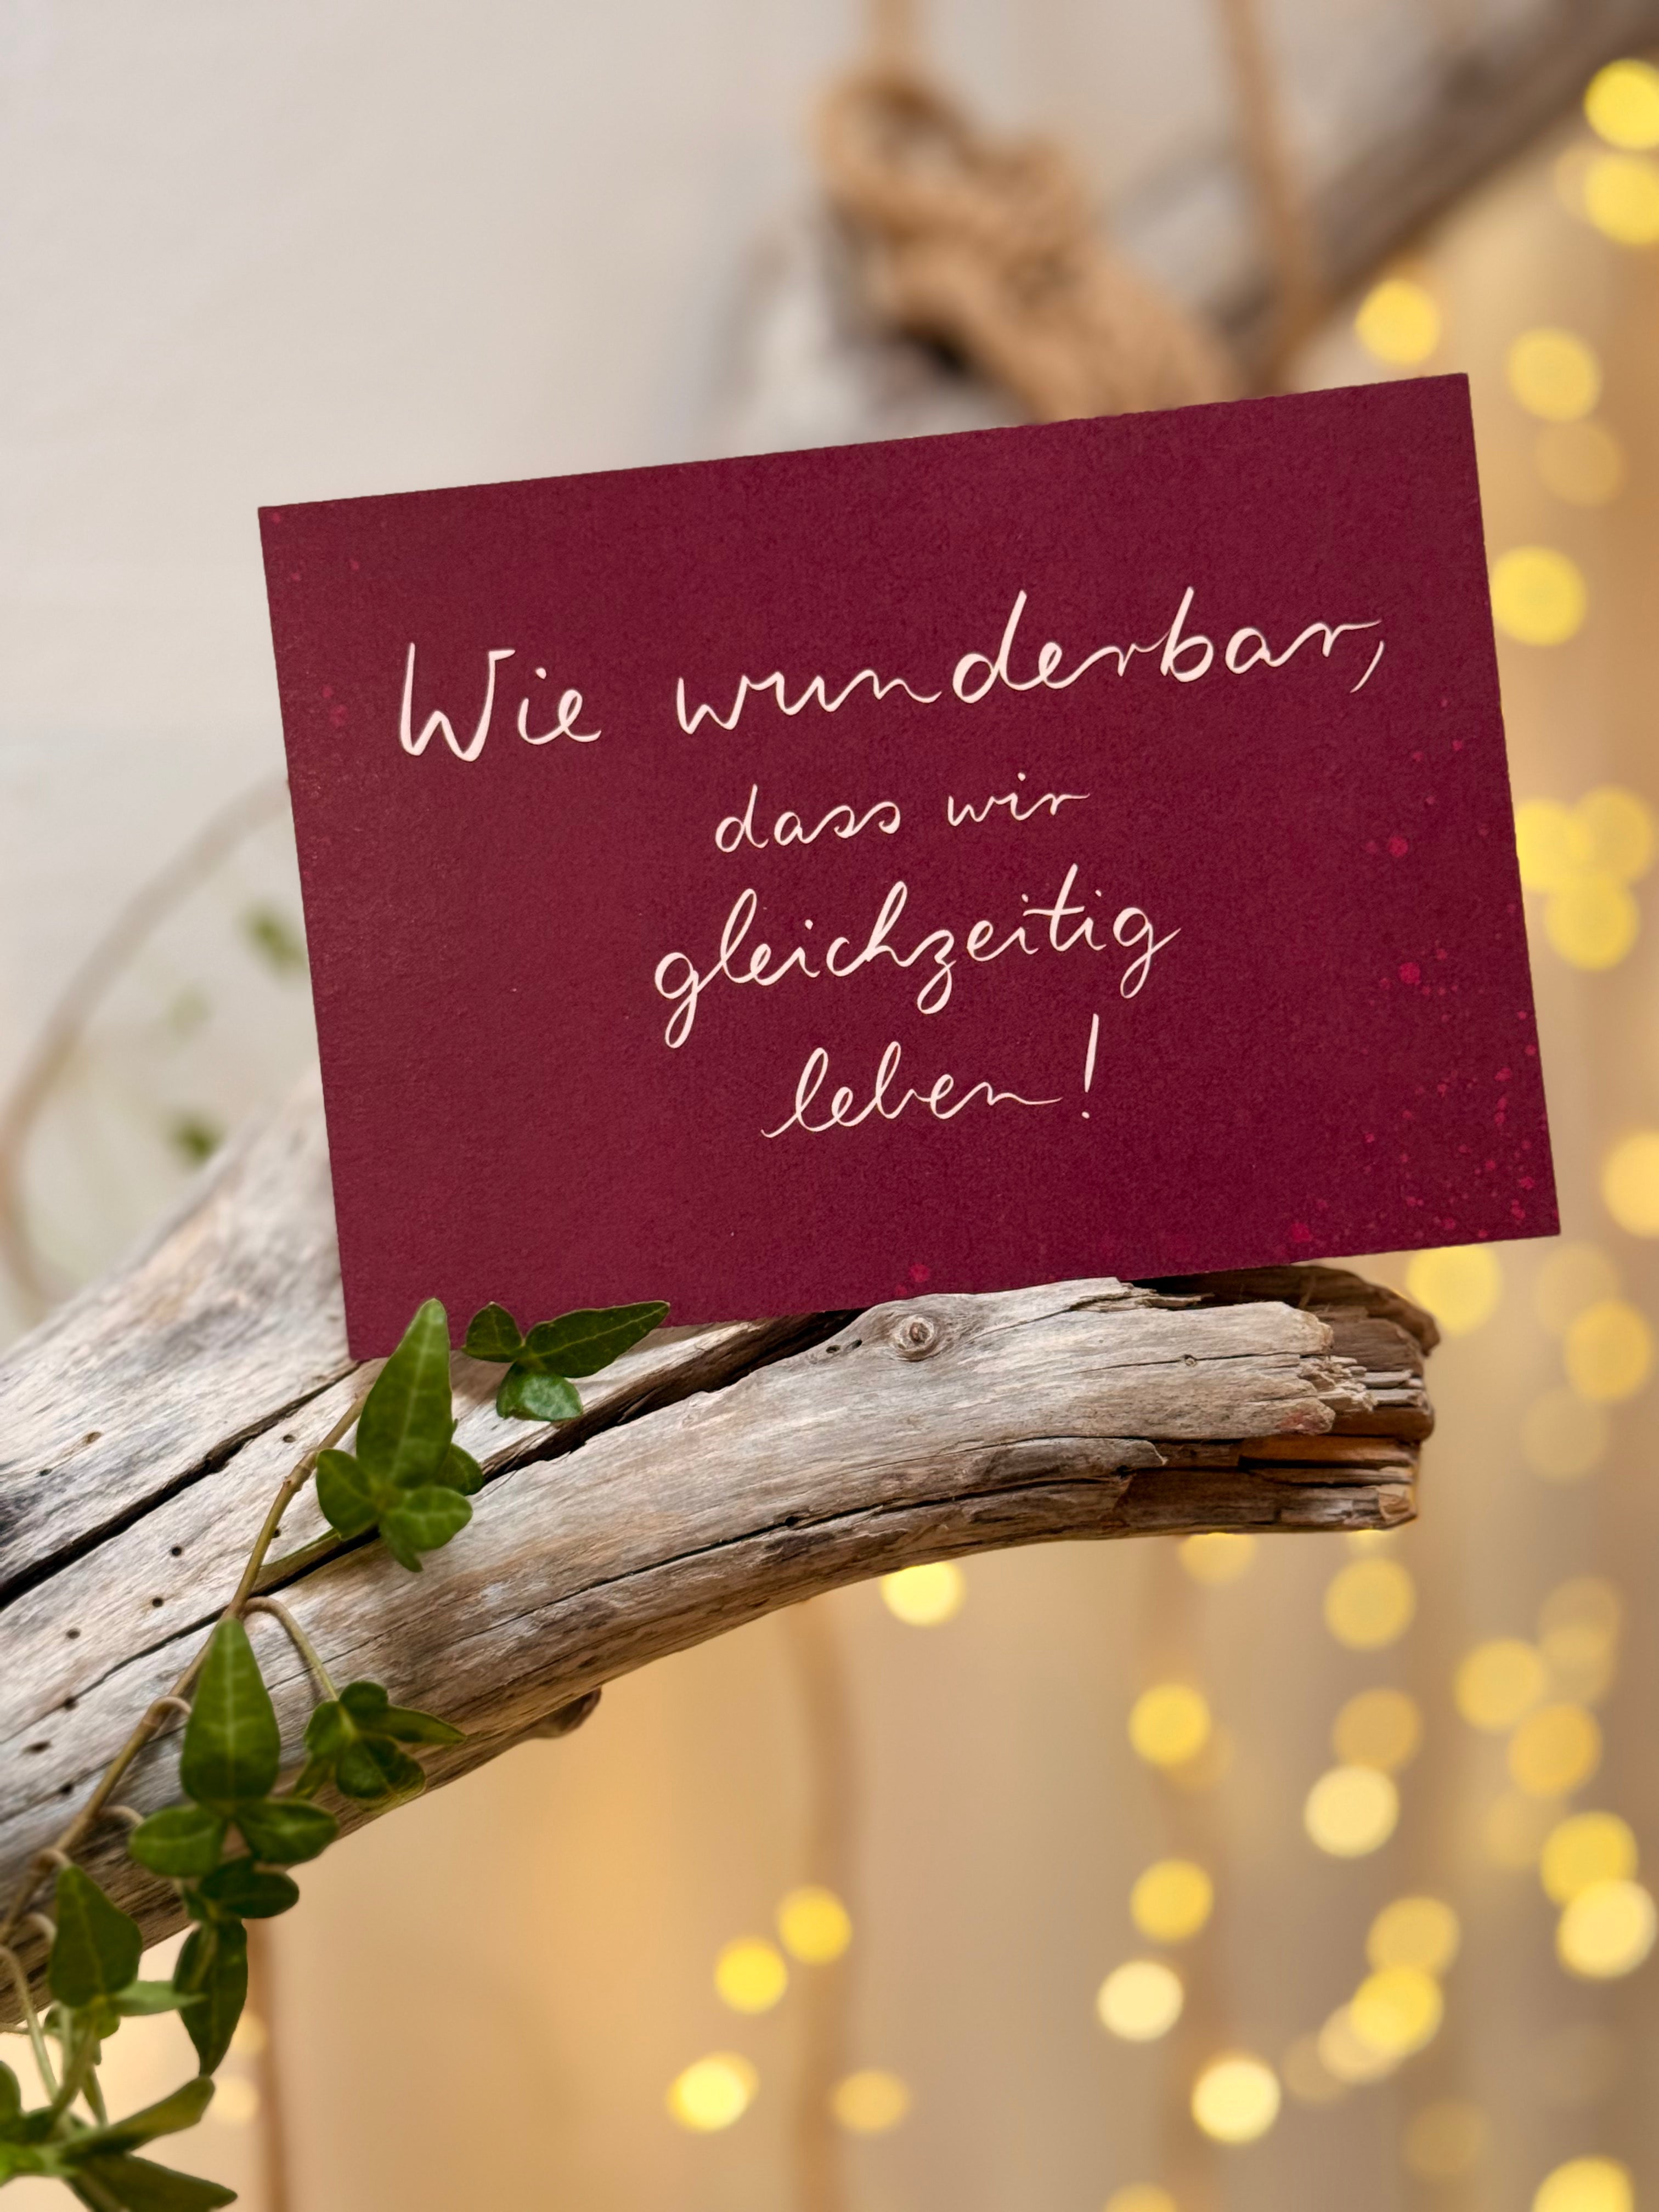 Wie wunderbar,
dass wir
gleichzeitig
leben!